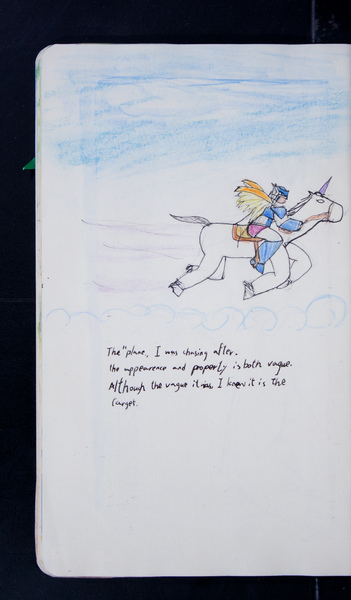 The "plane, I was chasing after.
the appearence and property is both vague.
Although the vague it is, I knew it is the
target.